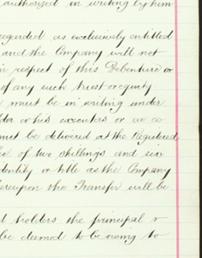 authorised in writing by him
regarded as exclusively entitled
and the Company will not
in respect of this Debenture or
of any such trust or equity
must be in writing under
or his executors or
must be delivered at the Registered
of two shillings and six
identity or title as the Company
thereupon the Transfer will be
holders the principal &
be deemed to be owing to